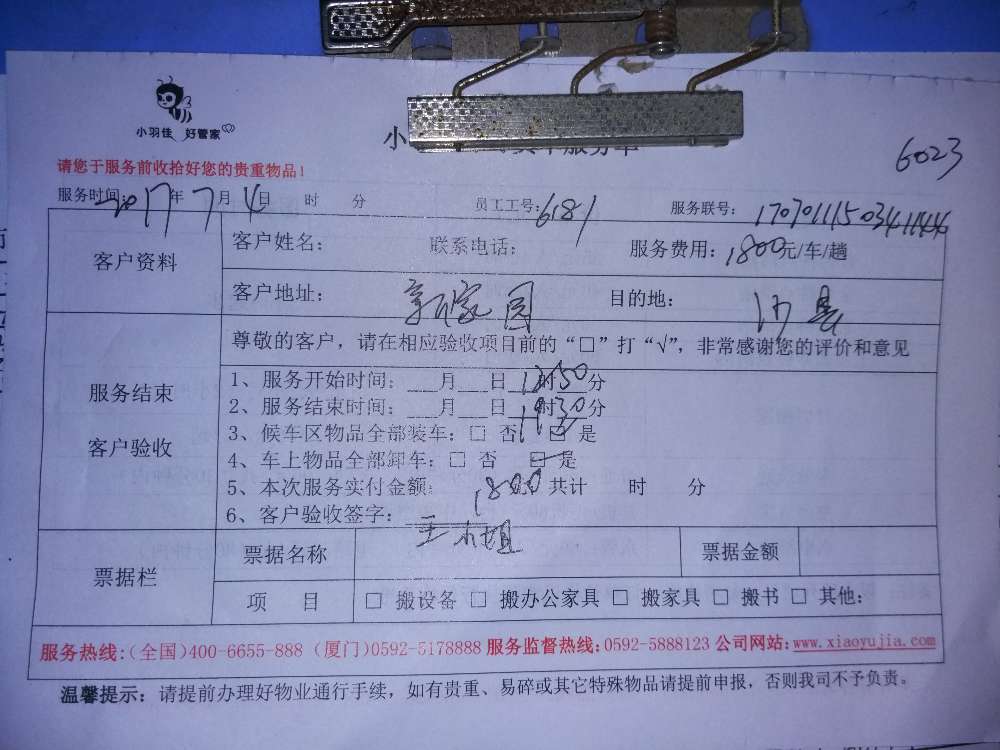 小羽佳 好管家
小
6023
请您于服务前收拾好您的贵重物品！
服务时间：2017年7月4日 时 分 员工工号：6181 服务联号：
客户资料
客户姓名： 联系电话： 服务费用：1800元/车/趟
客户地址： 新家园 目的地： 沙县
服务结束
客户验收
尊敬的客户，请在相应验收项目前的“□”打“√”，非常感谢您的评价和意见
1、服务开始时间：___月___日 时50分
2、服务结束时间：___月___日 19时30分
3、候车区物品全部装车：□ 否 ☑ 是
4、车上物品全部卸车：□ 否 ☑ 是
5、本次服务实付金额：1800 共计 时 分
6、客户验收签字：王小姐
票据栏
票据名称 票据金额
项 目 □ 搬设备 □ 搬办公家具 □ 搬家具 □ 搬书 □ 其他：
服务热线：（全国）400-6655-888（厦门）0592-5178888 服务监督热线：0592-5888123 公司网站：www.xiaoyujia.com
温馨提示：请提前办理好物业通行手续，如有贵重、易碎或其它特殊物品请提前申报，否则我司不予负责。